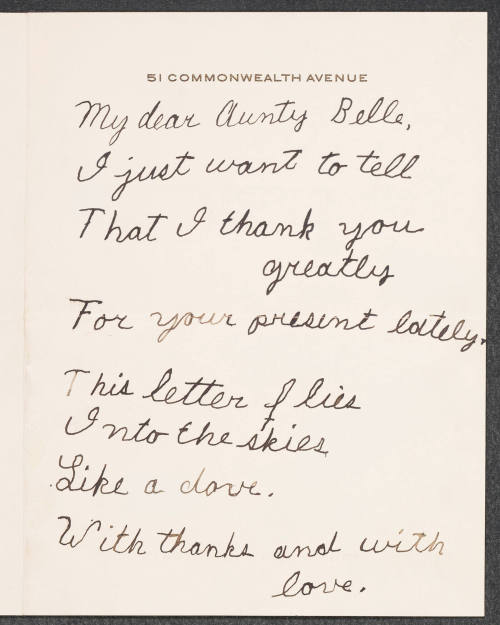 51 COMMONWEALTH AVENUE
My dear Aunty Belle,
I just want to tell
That I thank you
greatly
For your present lately.
This letter flies
Into the skies
Like a dove.
With thanks and with
love.